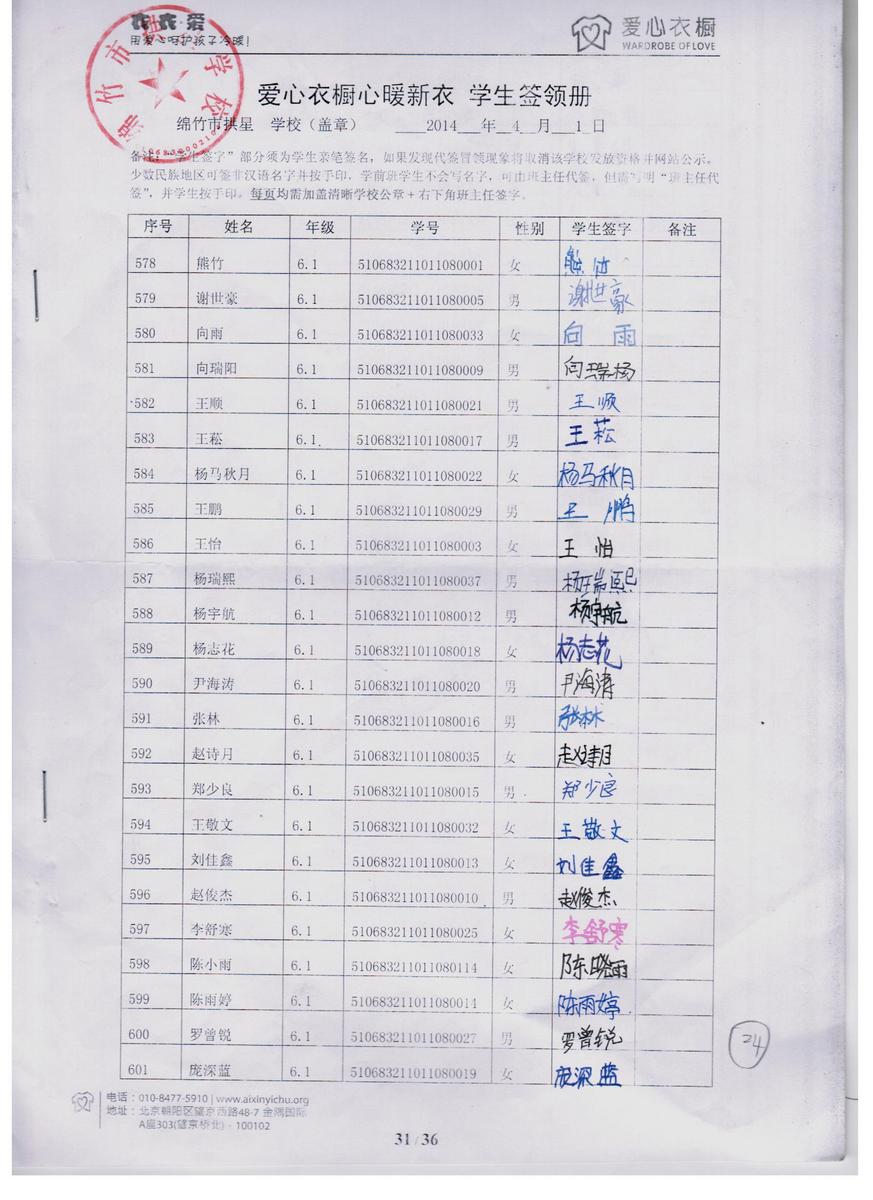 农衣·爱
用爱心呵护孩子冷暖!
爱心衣橱
WARDROBE OF LOVE
爱心衣橱心暖新衣 学生签领册
绵竹市拱星 学校（盖章） 2014 年 4 月 1 日
备注：“学生签字”部分须为学生亲笔签名，如果发现代签冒领现象将取消该学校发放资格并网站公示。
少数民族地区可签非汉语名字并按手印，学前班学生不会写名字，可由班主任代签，但需写明“班主任代
签”，并学生按手印。每页均需加盖清晰学校公章+右下角班主任签字。
序号 姓名 年级 学号 性别 学生签字 备注
578 熊竹 6.1 510683211011080001 女 熊竹
579 谢世豪 6.1 510683211011080005 男 谢世豪
580 向雨 6.1 510683211011080033 女 向雨
581 向瑞阳 6.1 510683211011080009 男 向瑞杨
582 王顺 6.1 510683211011080021 男 王顺
583 王菘 6.1 510683211011080017 男 王菘
584 杨马秋月 6.1 510683211011080022 女 杨马秋月
585 王鹏 6.1 510683211011080029 男 王鹏
586 王怡 6.1 510683211011080003 女 王怡
587 杨瑞熙 6.1 510683211011080037 男 杨瑞熙
588 杨宇航 6.1 510683211011080012 男 杨宇航
589 杨志花 6.1 510683211011080018 女 杨志花
590 尹海涛 6.1 510683211011080020 男 尹海涛
591 张林 6.1 510683211011080016 男 张林
592 赵诗月 6.1 510683211011080035 女 赵诗月
593 郑少良 6.1 510683211011080015 男 郑少良
594 王敬文 6.1 510683211011080032 女 王敬文
595 刘佳鑫 6.1 510683211011080013 女 刘佳鑫
596 赵俊杰 6.1 510683211011080010 男 赵俊杰
597 李舒寒 6.1 510683211011080025 女 李舒寒
598 陈小雨 6.1 510683211011080114 女 陈晓雨
599 陈雨婷 6.1 510683211011080014 女 陈雨婷
600 罗曾锐 6.1 510683211011080027 男 罗曾锐
601 庞深蓝 6.1 510683211011080019 女 庞深蓝
24
电话：010-8477-5910 | www.aixinyichu.org
地址：北京朝阳区望京西路48-7 金隅国际
A座303(望京桥北)·100102
31 / 36